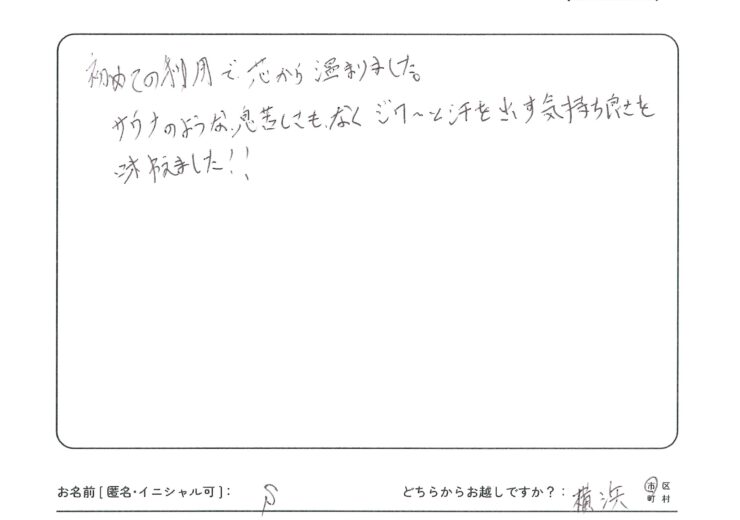 初めての利用で芯から温まりました。
サウナのような息苦しさもなくジワ〜と汗を出す気持ち良さを
味わえました!!
お名前[匿名・イニシャル可]： S
どちらからお越しですか？： 横浜 市区町村